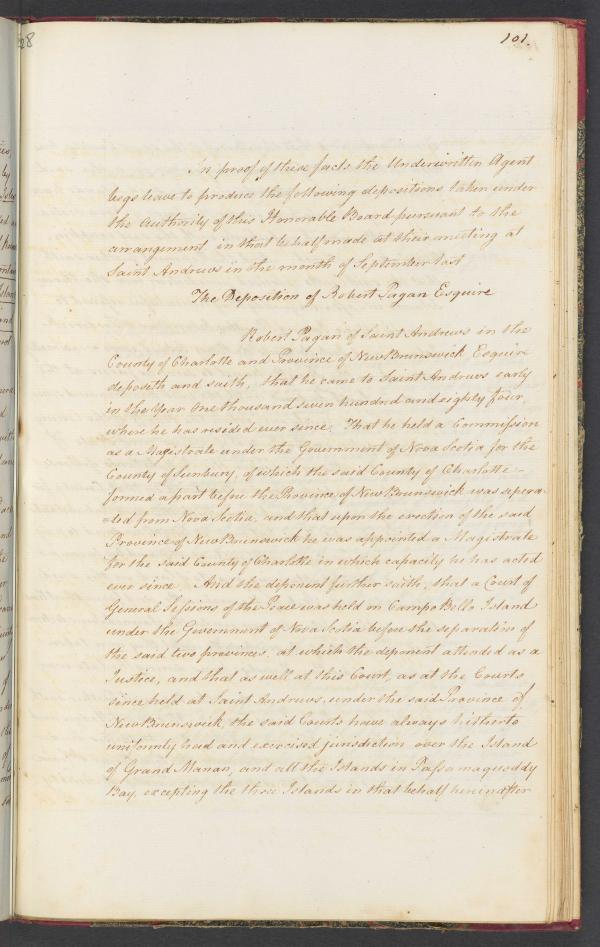 28
101.
In proof of these facts the Underwritten Agent
begs leave to produce the following depositions taken under
the Authority of this Honorable Board pursuant to the
arrangement in that behalf made at their meeting at
Saint Andrews in the month of September last
The Deposition of Robert Pagan Esquire
Robert Pagan of Saint Andrews in the
County of Charlotte and Province of New Brunswick Esquire
deposeth and saith, that he came to Saint Andrews early
in the Year One thousand seven hundred and eighty four,
where he has resided ever since. That he held a Commission
as a Magistrate under the Government of Nova Scotia for the
County of Sunbury, of which the said County of Charlotte -
formed a part before the Province of New Brunswick was separa-
=ted from Nova Scotia, and that upon the erection of the said
Province of New Brunswick he was appointed a Magistrate
for the said County of Charlotte in which capacity he has acted
ever since. And the deponent further saith, that a Court of
General Sessions of the Peace was held on Campo Bello Island
under the Government of Nova Scotia before the separation of
the said two provinces, at which the deponent attended as a
Justice, and that as well at this Court, as at the Courts
since held at Saint Andrews, under the said Province of
New Brunswick, the said Courts have always hitherto
uniformly had and exercised jurisdiction over the Island
of Grand Manan, and all the Islands in Passamaquoddy
Bay, excepting the three Islands in that behalf hereinafter